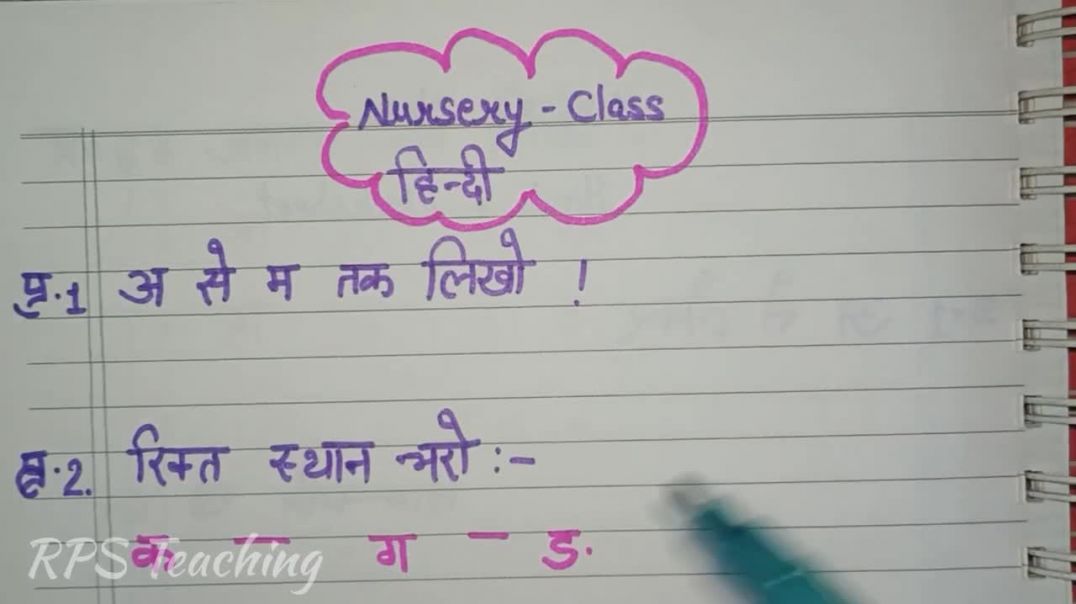 Nursery - Class
हिन्दी
प्र.1 अ से म तक लिखो !
प्र.2. रिक्त स्थान भरो :-
क — ग — ङ
RPS Teaching